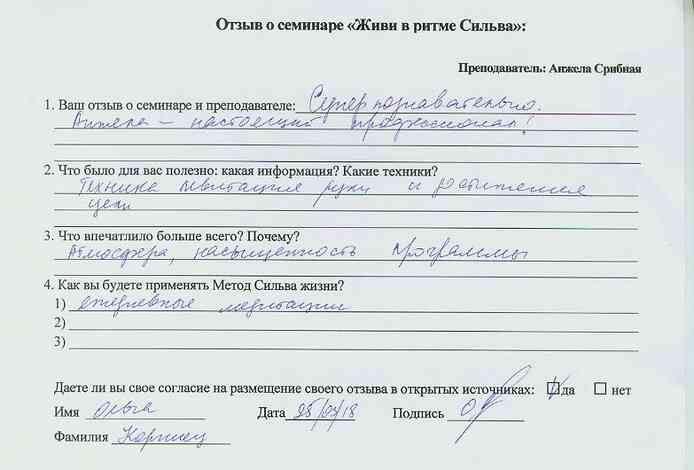 Отзыв о семинаре «Живи в ритме Сильва»:
Преподаватель: Анжела Срибная
1. Ваш отзыв о семинаре и преподавателе: Супер познавательно.
Анжела – настоящий профессионал!
2. Что было для вас полезно: какая информация? Какие техники?
Техника левитация руки и достижения
цели
3. Что впечатлило больше всего? Почему?
Атмосфера, насыщенность программы
4. Как вы будете применять Метод Сильва жизни?
1) ежедневные медитации
2)
3)
Даете ли вы свое согласие на размещение своего отзыва в открытых источниках: да нет
Имя Ольга Дата 25/03/18 Подпись
Фамилия